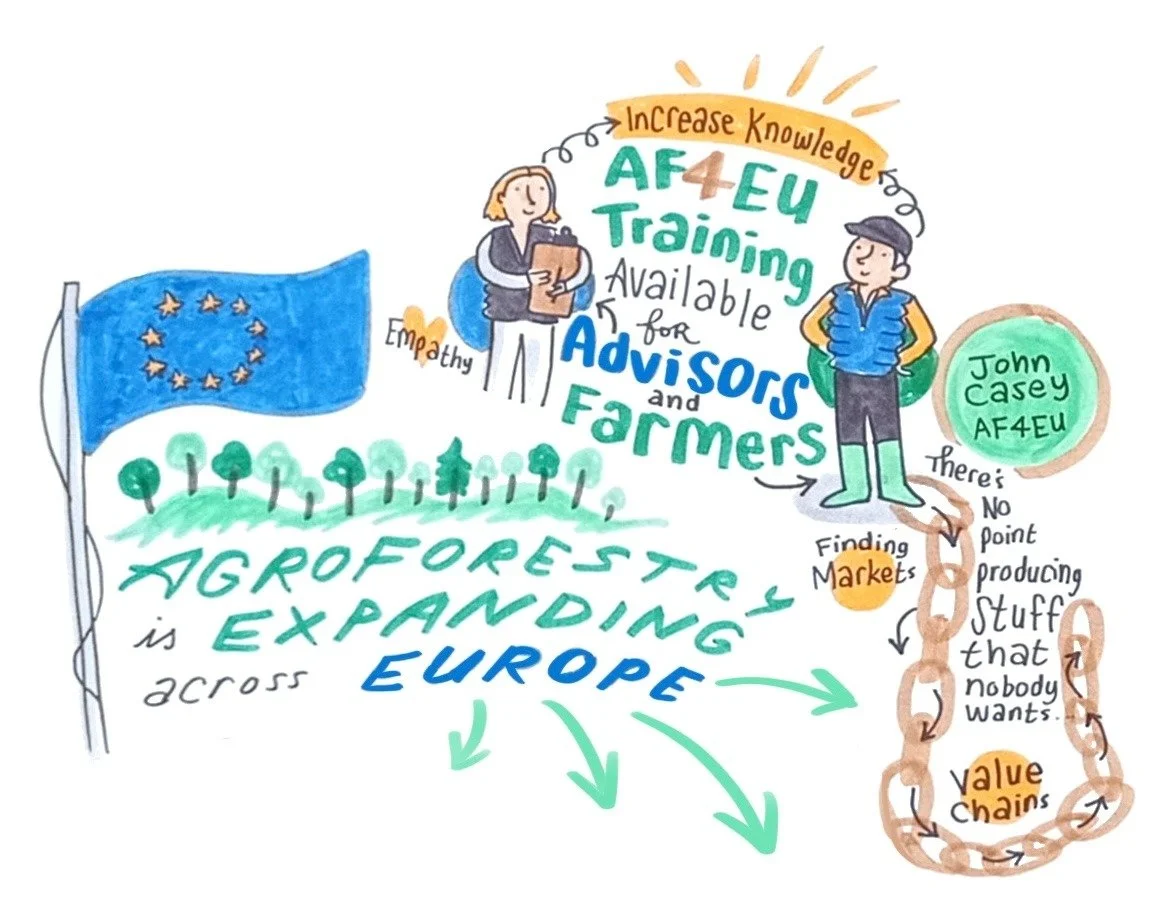 Increase Knowledge
AF4EU
Training
Available
for
Advisors
and
Farmers
Empathy
John
Casey
AF4EU
AGROFORESTRY
is EXPANDING
across EUROPE
Finding
Markets
There's
No
point
producing
stuff
that
nobody
wants...
Value
Chains